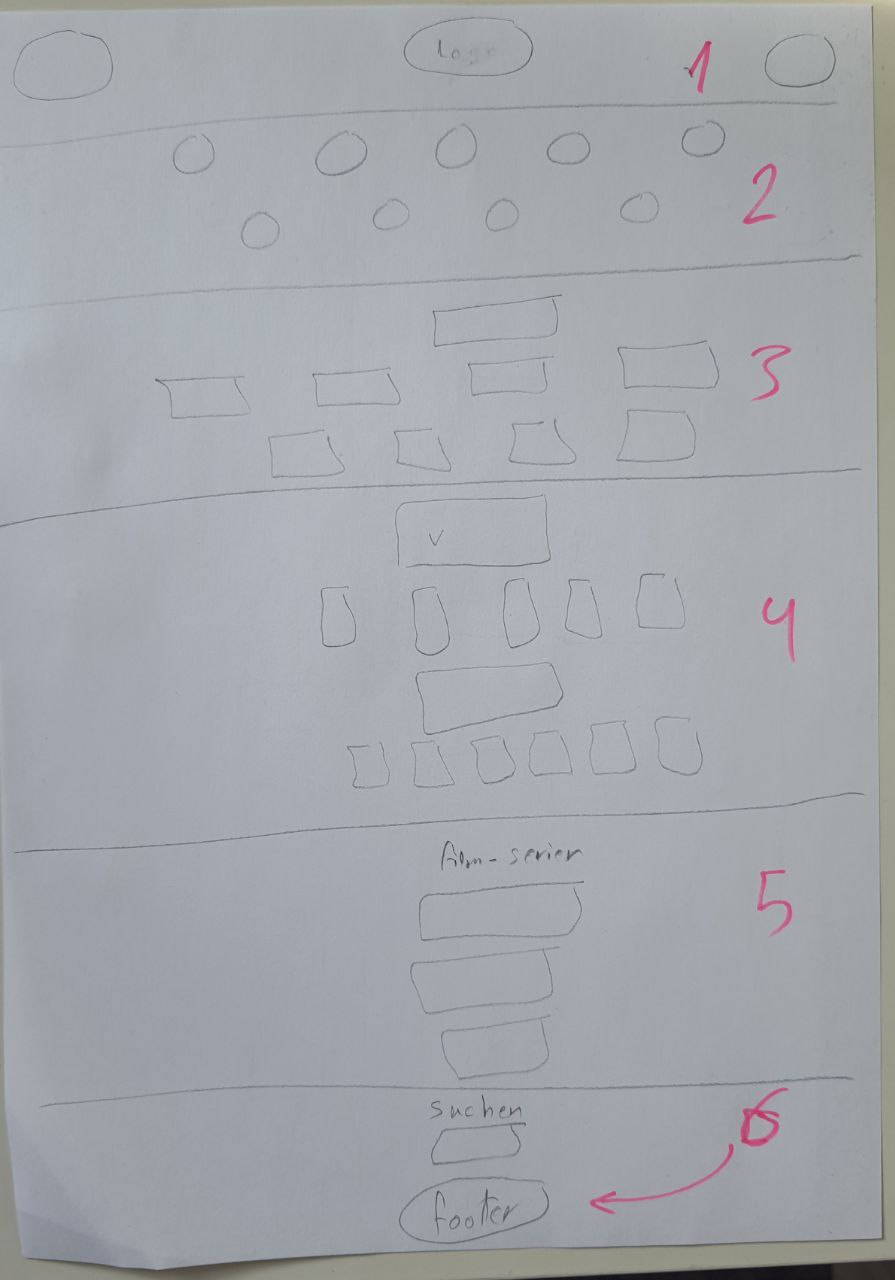 Logo
1
2
3
v
4
film-serien
5
suchen
6
footer